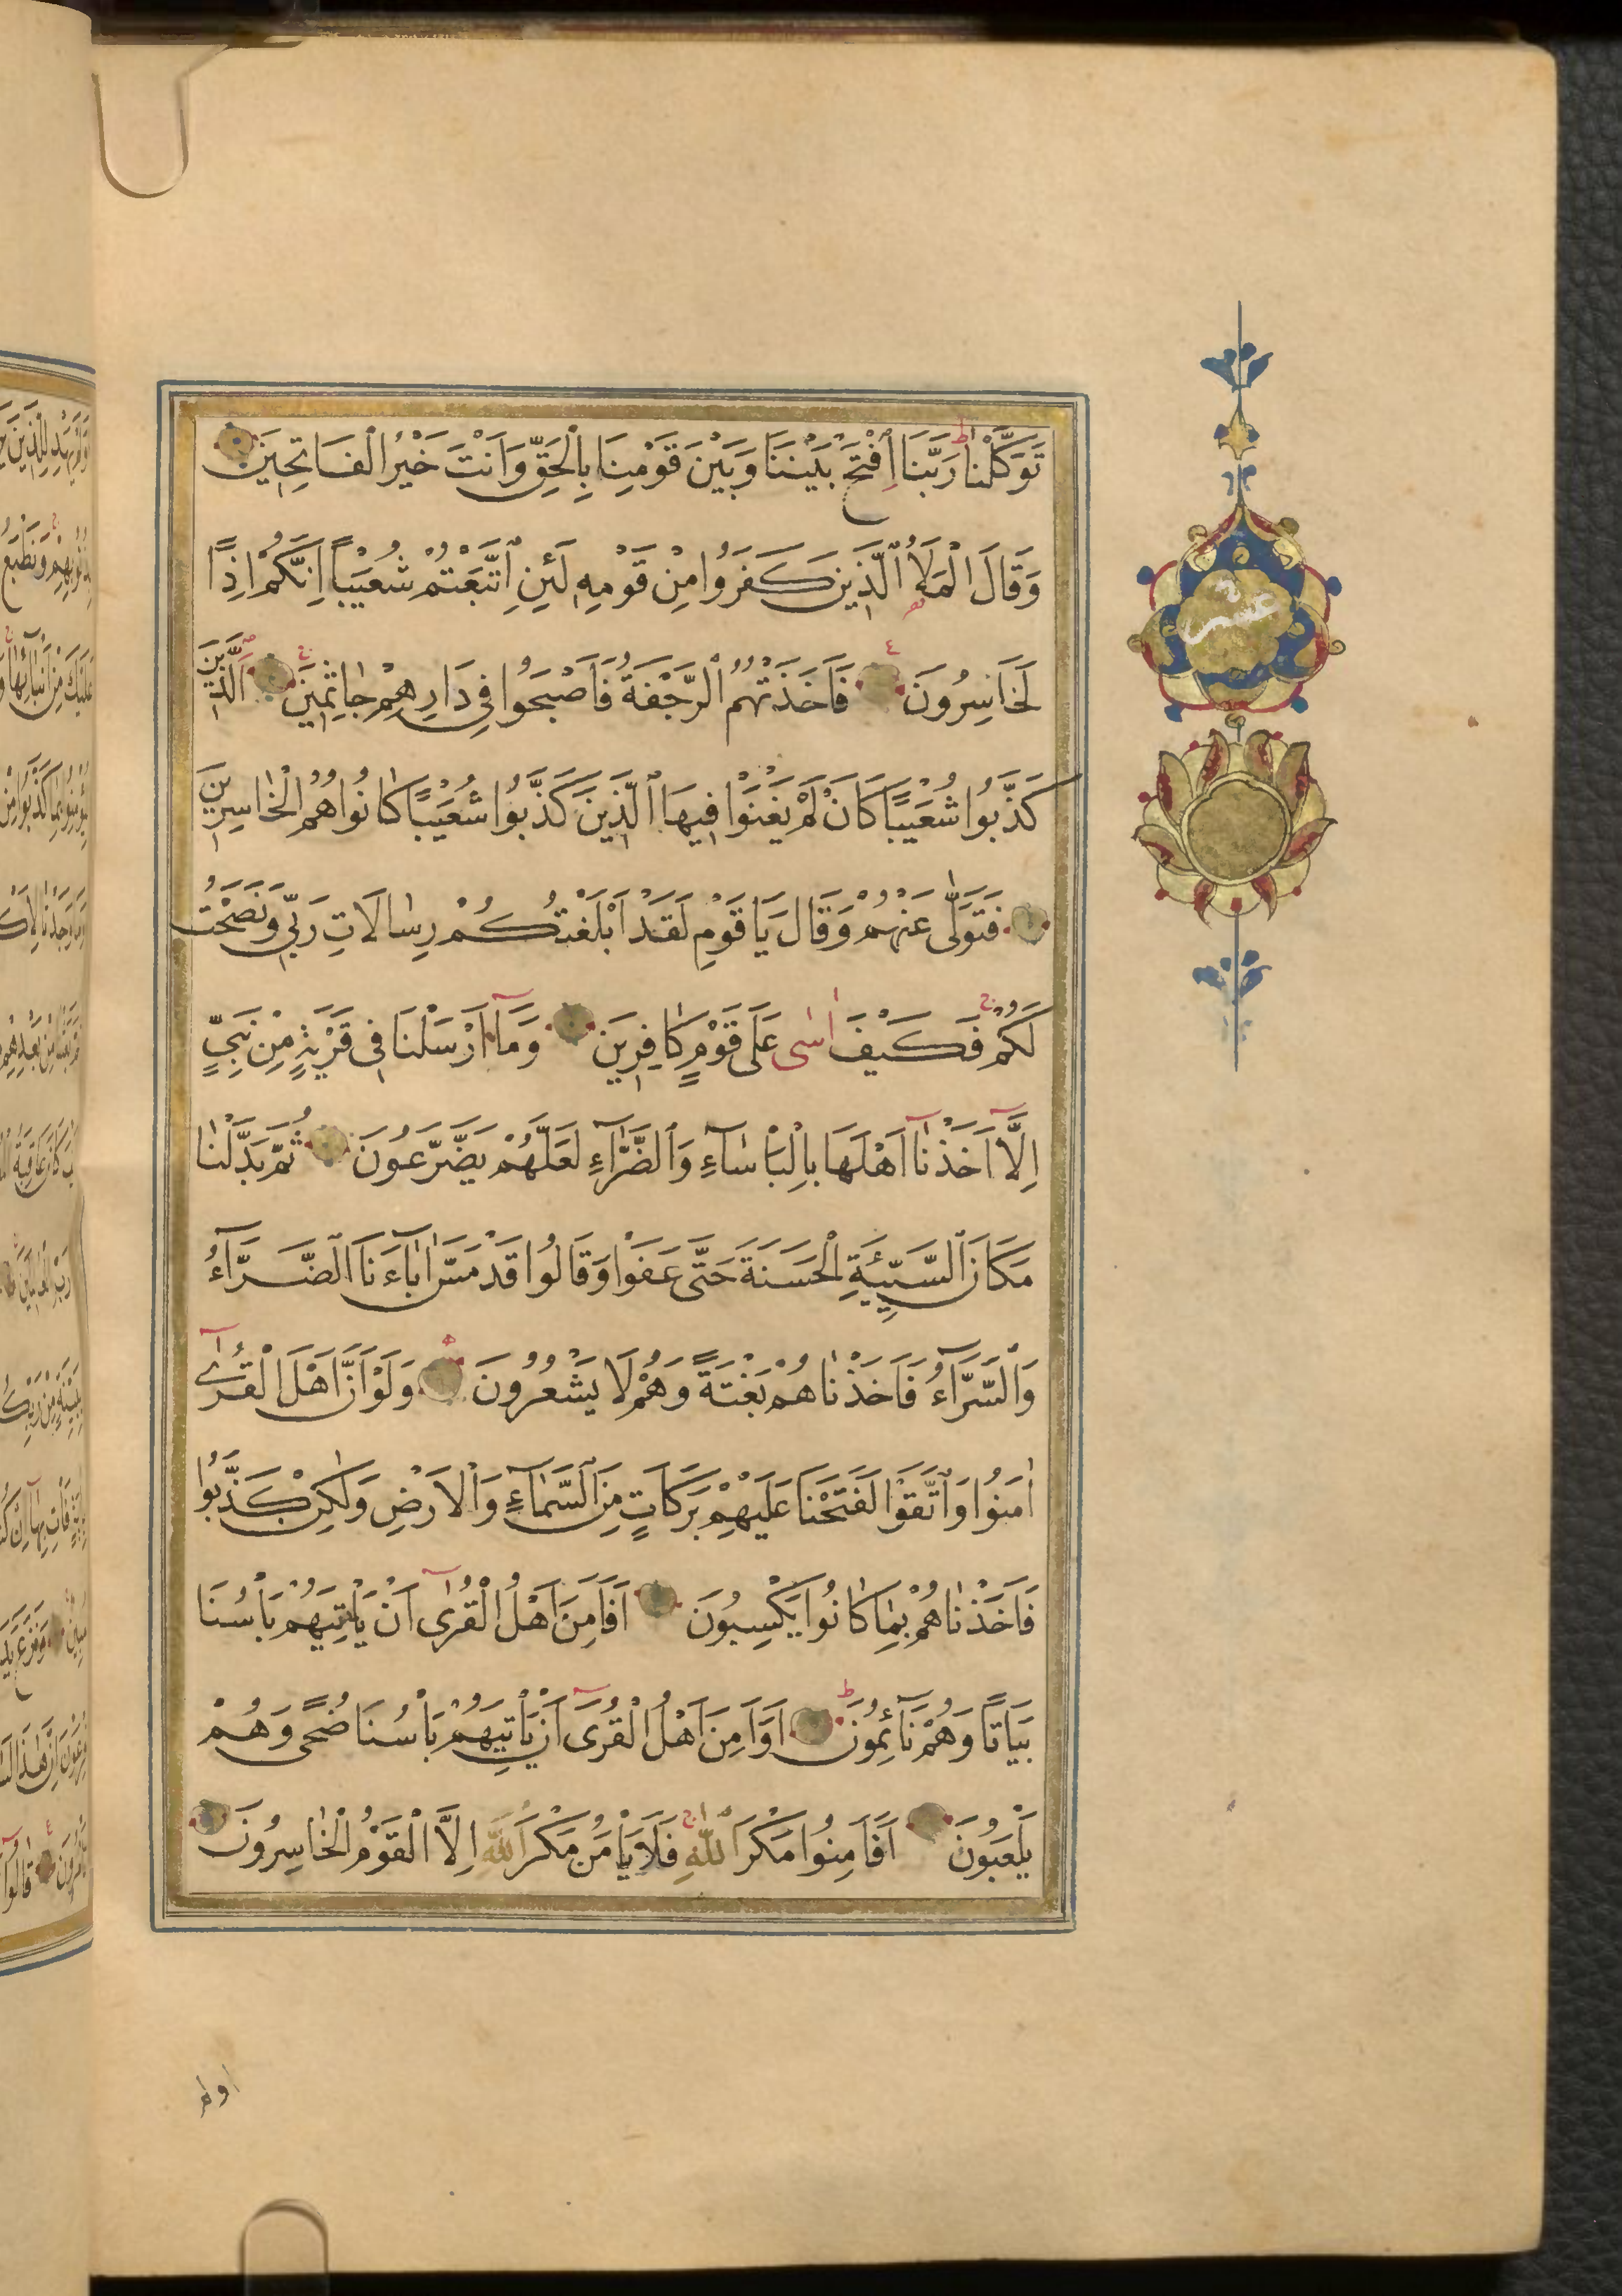 تَوَكَّلْنَا رَبَّنَا اِفْتَحْ بَيْنَنَا وَبَيْنَ قَوْمِنَا بِالْحَقِّ وَاَنْتَ خَيْرُ الْفَاتِحِينَ
وَقَالَ الْمَلَأُ الَّذِينَ كَفَرُوا مِنْ قَوْمِهِ لَئِنِ اتَّبَعْتُمْ شُعَيْبًا اِنَّكُمْ اِذًا
لَخَاسِرُونَ فَاَخَذَتْهُمُ الرَّجْفَةُ فَاَصْبَحُوا فِى دَارِهِمْ جَاثِمِينَ اَلَّذِينَ
كَذَّبُوا شُعَيْبًا كَاَنْ لَمْ يَغْنَوْا فِيهَا الَّذِينَ كَذَّبُوا شُعَيْبًا كَانُوا هُمُ الْخَاسِرِينَ
فَتَوَلّٰى عَنْهُمْ وَقَالَ يَا قَوْمِ لَقَدْ اَبْلَغْتُكُمْ رِسَالَاتِ رَبِّى وَنَصَحْتُ
لَكُمْ فَكَيْفَ اٰسٰى عَلٰى قَوْمٍ كَافِرِينَ وَمَآ اَرْسَلْنَا فِى قَرْيَةٍ مِنْ نَبِىٍّ
اِلَّآ اَخَذْنَآ اَهْلَهَا بِالْبَاْسَآءِ وَالضَّرَّآءِ لَعَلَّهُمْ يَضَّرَّعُونَ ثُمَّ بَدَّلْنَا
مَكَانَ السَّيِّئَةِ الْحَسَنَةَ حَتّٰى عَفَوْا وَقَالُوا قَدْ مَسَّ اٰبَآءَنَا الضَّرَّآءُ
وَالسَّرَّآءُ فَاَخَذْنَاهُمْ بَغْتَةً وَهُمْ لَا يَشْعُرُونَ وَلَوْ اَنَّ اَهْلَ الْقُرٰٓى
اٰمَنُوا وَاتَّقَوْا لَفَتَحْنَا عَلَيْهِمْ بَرَكَاتٍ مِنَ السَّمَآءِ وَالْاَرْضِ وَلٰكِنْ كَذَّبُوا
فَاَخَذْنَاهُمْ بِمَا كَانُوا يَكْسِبُونَ اَفَاَمِنَ اَهْلُ الْقُرٰٓى اَنْ يَاْتِيَهُمْ بَاْسُنَا
بَيَاتًا وَهُمْ نَآئِمُونَ اَوَاَمِنَ اَهْلُ الْقُرٰٓى اَنْ يَاْتِيَهُمْ بَاْسُنَا ضُحًى وَهُمْ
يَلْعَبُونَ اَفَاَمِنُوا مَكْرَ اللّٰهِ فَلَا يَاْمَنُ مَكْرَ اللّٰهِ اِلَّا الْقَوْمُ الْخَاسِرُونَ
عشر
اولم